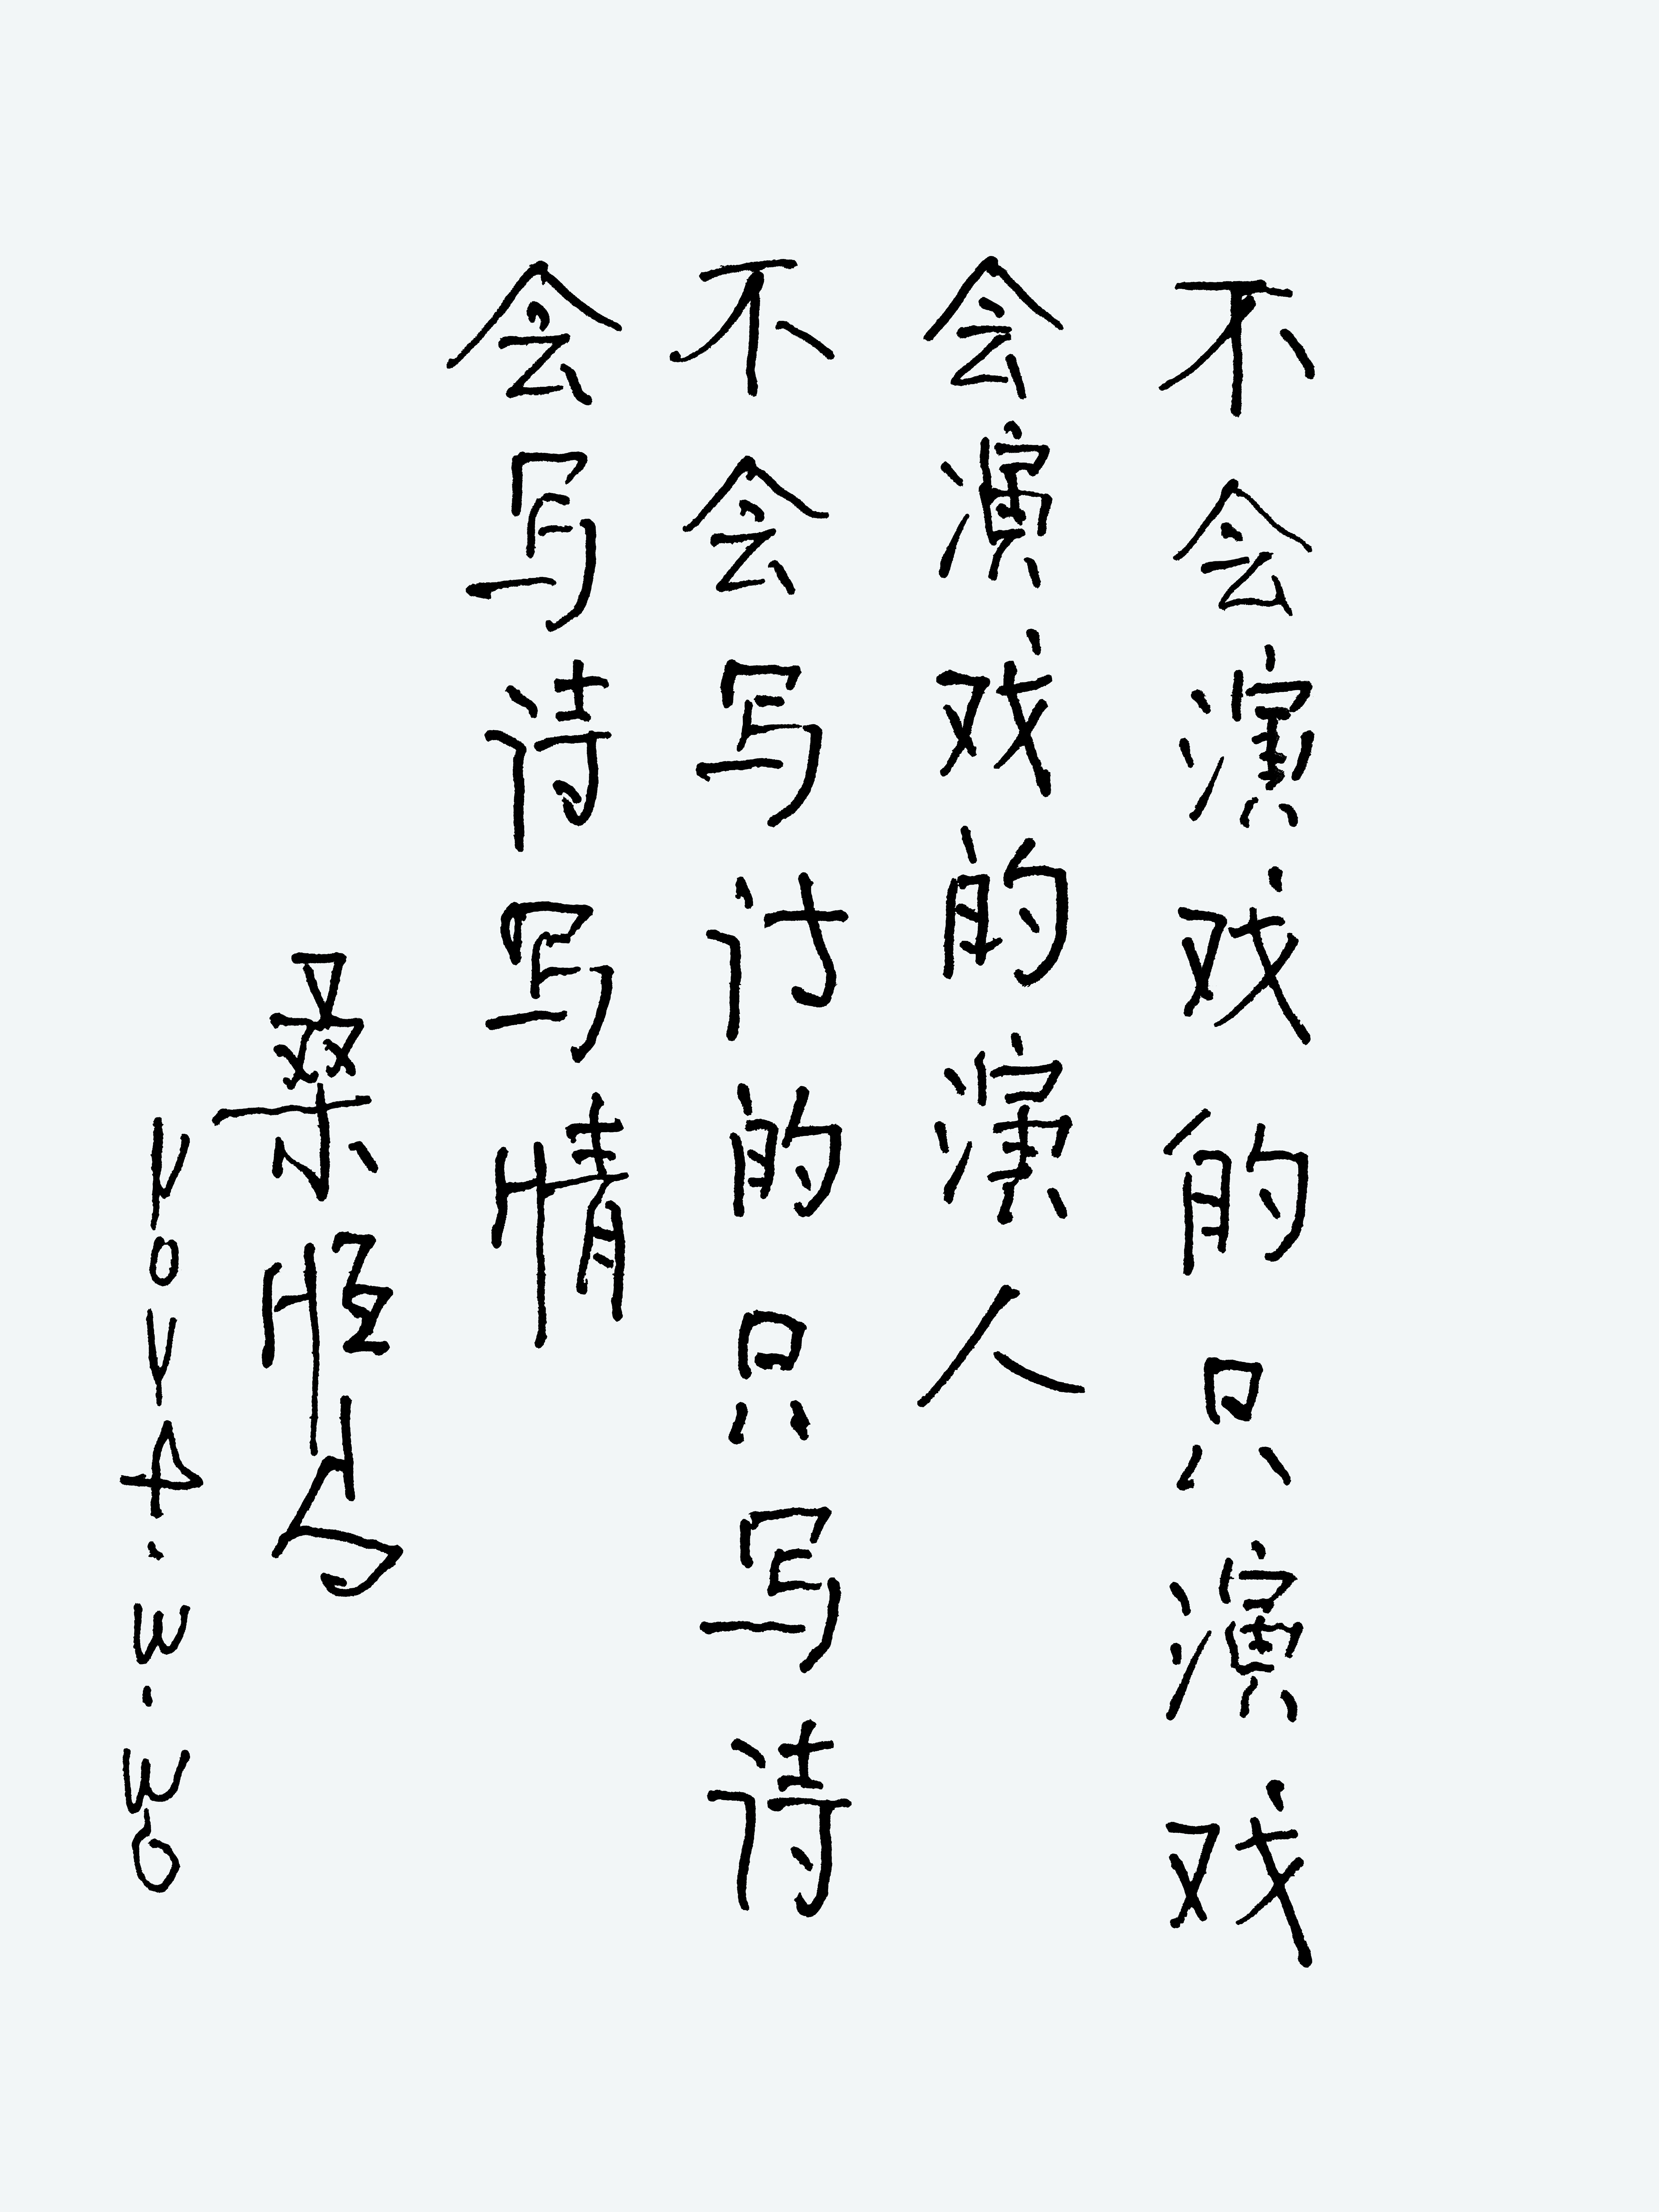 不会演戏的只演戏
会演戏的演人
不会写讨的只写诗
会写诗写情
桑恒昌